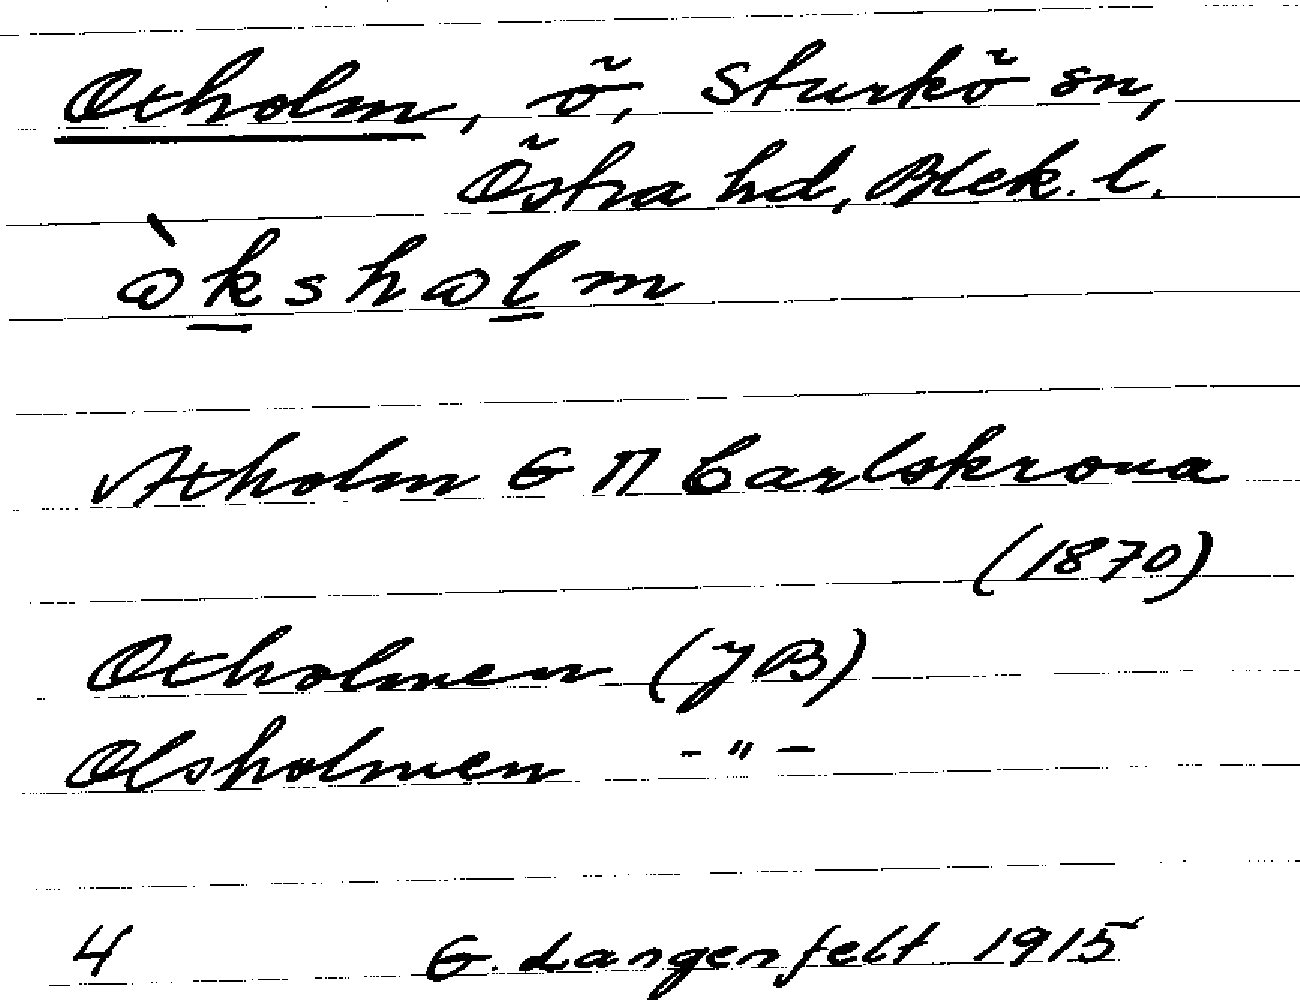 Oxholm, ö, Sturkö sn,
Östra hd, Blek. l.
òkshωlm
Axholm G Π Carlskrona
(1870)
Oxholmen (JB)
Olsholmen -"-
4 G. Langenfelt 1915